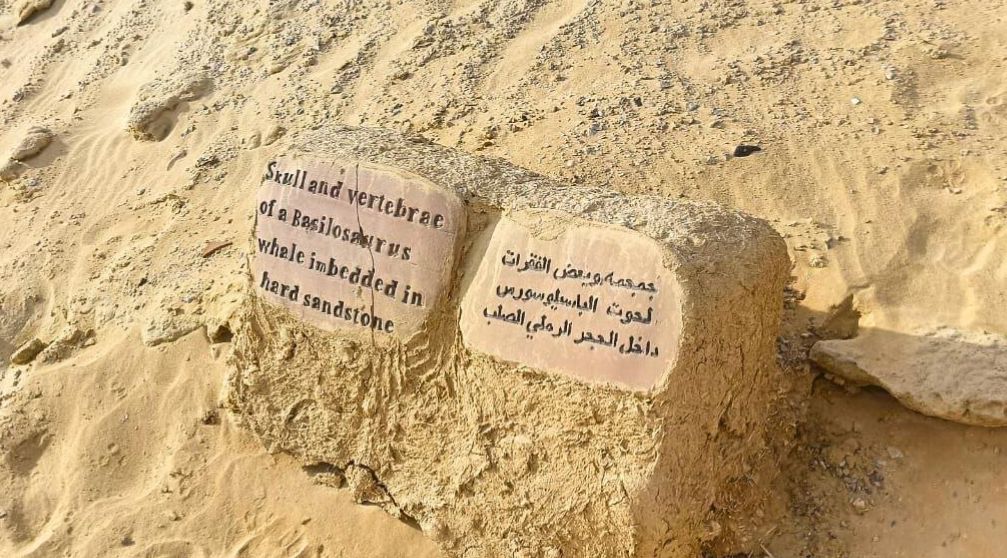 Skull and vertebrae
of a Basilosaurus
whale imbedded in
hard sandstone
جمجمه وبعض الفقرات
لحوت الباسيلوسورس
داخل الحجر الرملي الصلب